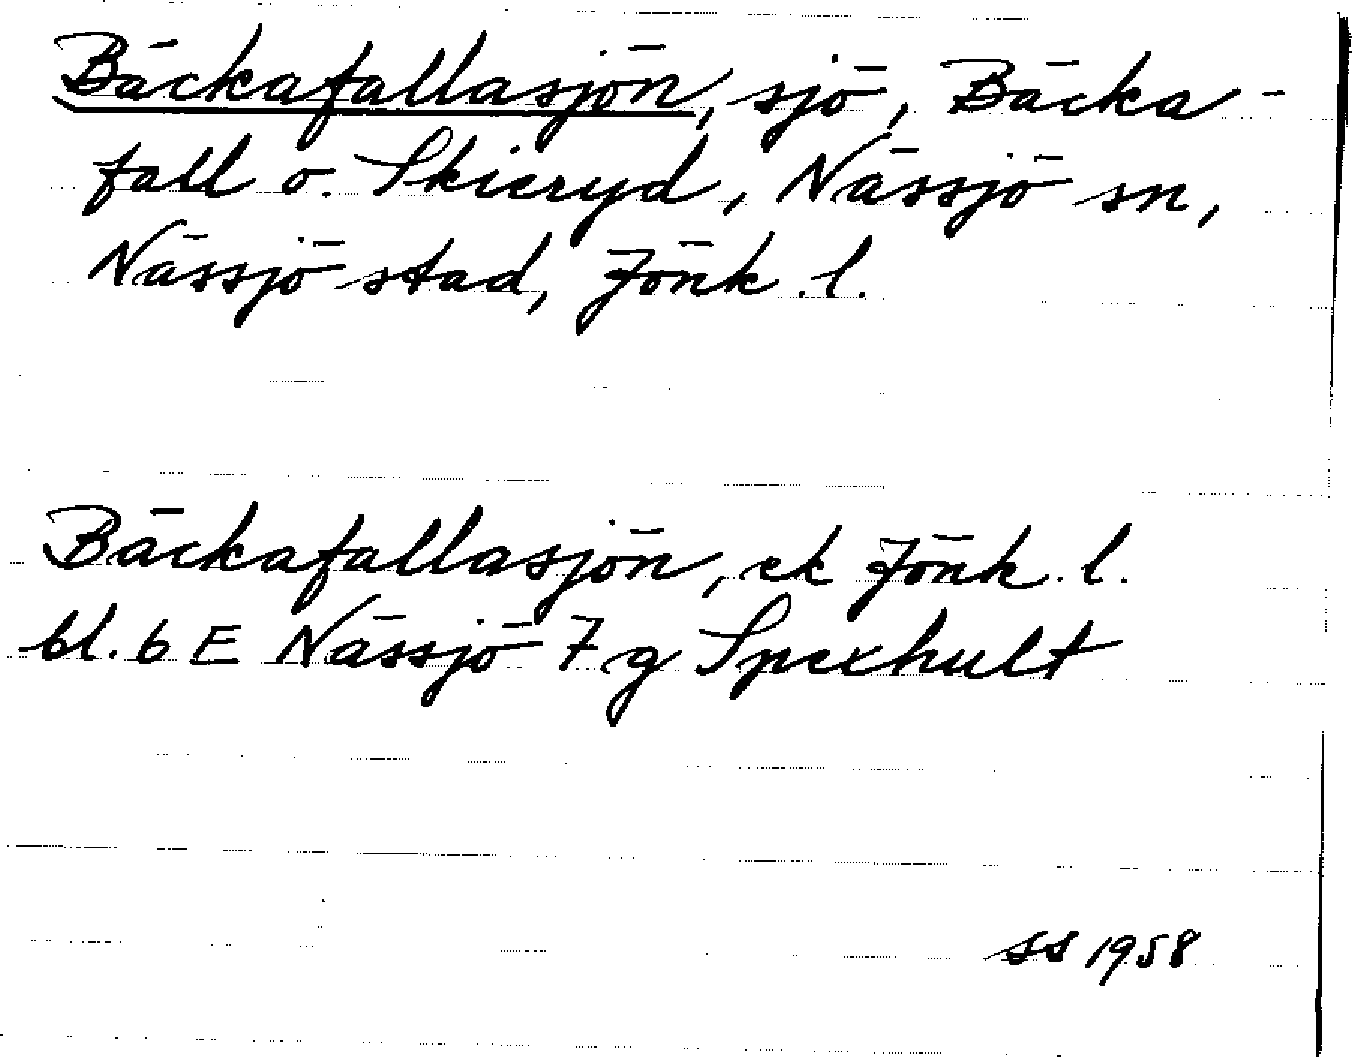 Bäckafallasjön, sjö, Bäcka-
fall o. Skieryd, Nässjö sn,
Nässjö stad, Jönk. l.
Bäckafallasjön, ek Jönk. l.
bl. 6 E Nässjö 7 g Spexhult
SS 1958